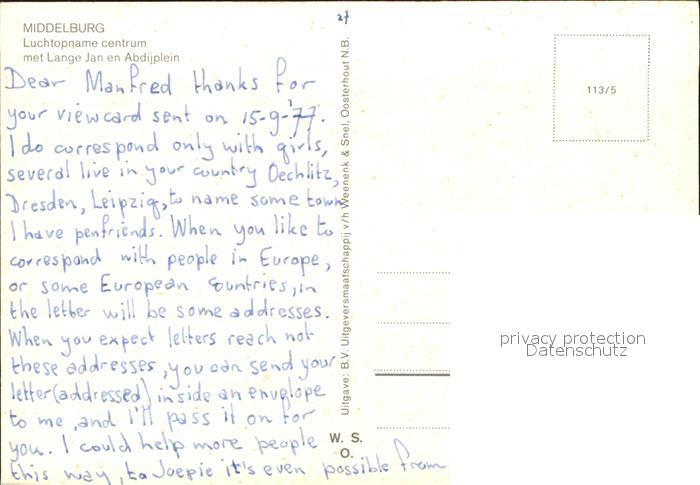 MIDDELBURG
Luchtopname centrum
met Lange Jan en Abdijplein
Dear Manfred thanks for
your viewcard sent on 15-9-'77.
I do correspond only with girls,
several live in your country Oechlitz,
Dresden, Leipzig, to name some town
I have penfriends. When you like to
correspond with people in Europe,
or some European countries, in
the letter will be some addresses.
When you expect letters reach not
these addresses, you can send your
letter (addressed) inside an envelope
to me, and I'll pass it on for
you. I could help more people
this way, to Joepie it's even possible from
Uitgave: B.V. Uitgeversmaatschappij v/h Weenenk & Snel, Oosterhout N.B.
W. S.
O.
113/5
privacy protection
Datenschutz